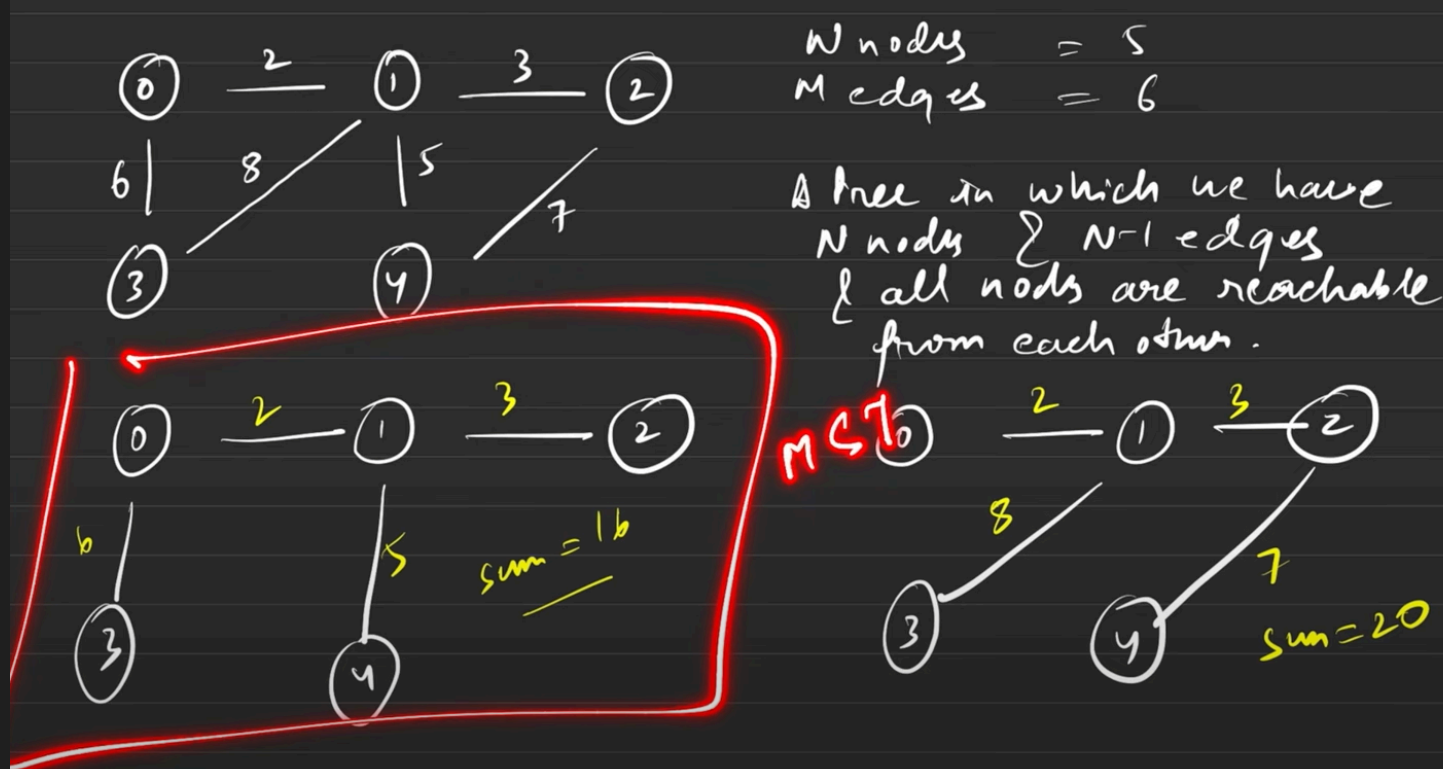 N nodes = 5
M edges = 6
0 2 1 3 2
6 8 5 7
3 4
A tree in which we have
N nodes & N-1 edges
& all nodes are reachable
from each other.
0 2 1 3 2
6 5 sum = 16
3 4
MST
0 2 1 3 2
8 7
3 4 sum = 20